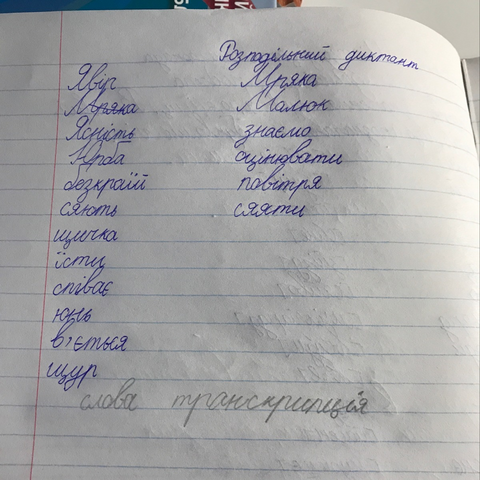 Розподільний диктант
Явір Мряка
Мряка Малюк
Ясність знаємо
Юрба оцінювати
безкраїй повітря
сяють сяяти
щічка
їсти
співає
юнь
в'ється
щур
слова транскрипція